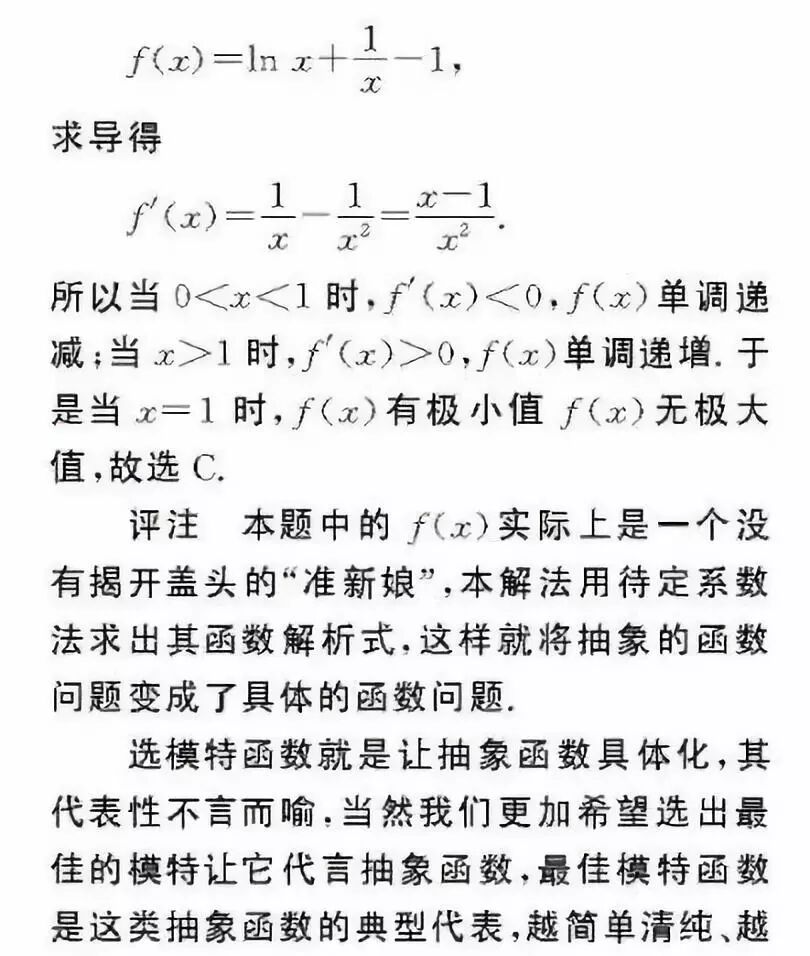 f(x)=ln x+1/x-1,
求导得
f′(x)=1/x-1/x²=(x-1)/x².
所以当 0<x<1 时,f′(x)<0,f(x)单调递
减;当 x>1 时,f′(x)>0,f(x)单调递增.于
是当 x=1 时,f(x)有极小值 f(x)无极大
值,故选 C.
评注 本题中的 f(x)实际上是一个没
有揭开盖头的“准新娘”,本解法用待定系数
法求出其函数解析式,这样就将抽象的函数
问题变成了具体的函数问题.
选模特函数就是让抽象函数具体化,其
代表性不言而喻.当然我们更加希望选出最
佳的模特让它代言抽象函数,最佳模特函数
是这类抽象函数的典型代表,越简单清纯、越